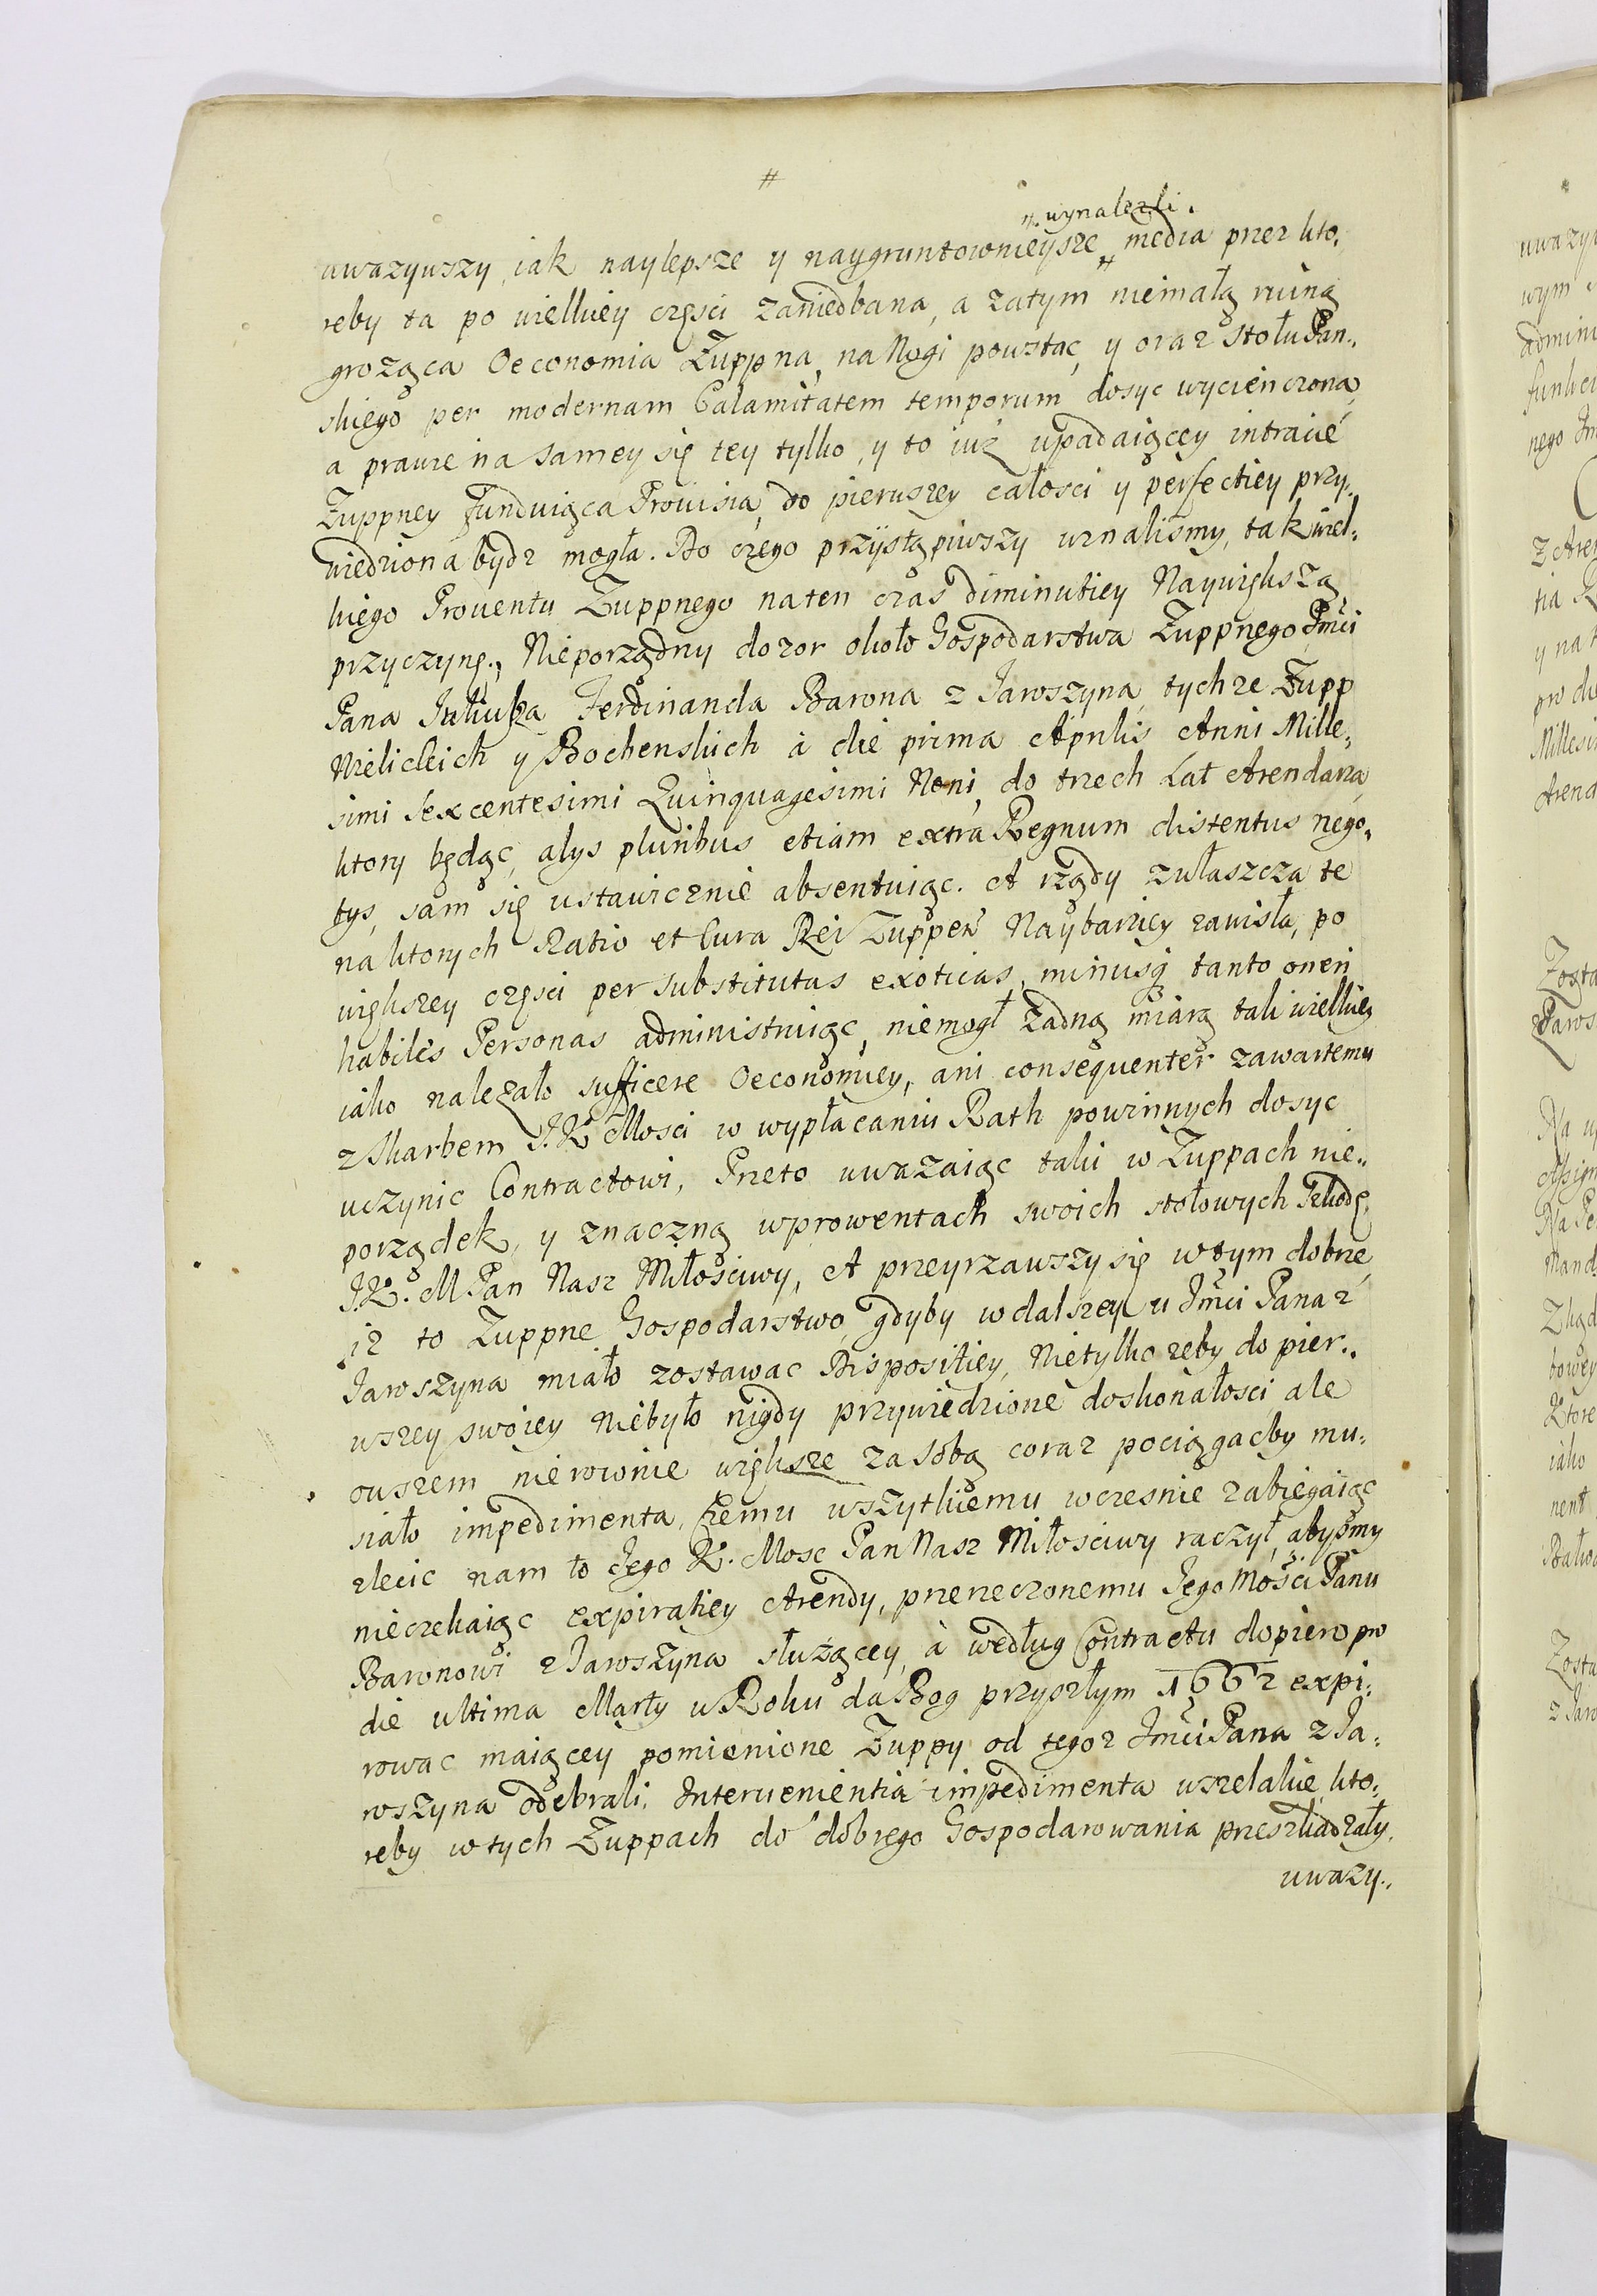 #
". wynalezli.
uwazywszy, iak naylepsze y naygruntownieysze " media przez kto,
reby ta po wielkiey częsci zaniedbana, a zatym niemałą ruiną
grożąca Oeconomia Żuppna, na Nogi powstac, y oraz stołu Pan„
skiego per modernam Calamitatem temporum dosyc wycieńczona,
a prawie na samey się tey tylko, y to iuż upadaiącey intracie
Żuppney funduiąca Prouisia, do pierwszey całosci y perfectiey przy„
wiedziona bydz mogła. Do czego przystąpiwszy uznalismy, tak wiel„
kiego Prouentu Żuppnego na ten czas diminutiey Naywiększą
przyczynę., Nieporządny dozor około Gospodarstwa Żuppnego Jmci
Pana Juliusza Ferdinanda Barona z Jaroszyna, tychze Żupp
Wielickich y Bochenskich à die prima Aprilis Anni Mille„
simi sexcentesimi Quinquagesimi Noni, do trzech Lat Arendarza,
ktory będąc, alys pluribus etiam extra Regnum distentus nego„
tys, sam się ustawicznie absentuiąc. A rządy zwłaszcza te
na ktorych Ratio et Cura Rei Żuppen Naybarziey zawisła, po
większey częsci per substitutas exoticas, minusq tanto oneri
habiles Personas administruiąc, niemogł żadną miarą taki wielkiey
iako nalezało sufficere Oeconomiey, ani consequenter zawartemu
z Skarbem J.K Mosci w wypłacaniu Rath powinnych dosyc
uczynic Contractowi, Przeto uwazaiąc taki w Żuppach nie„
porządek, y znaczną w prowentach swoich stołowych szkodę,
J.K. M Pan Nasz Miłosciwy, A przeyrzawszy się w tym dobrze,
iz to Żuppne Gospodarstwo, gdyby w dalszey u Jmci Pana z
Jaroszyna miało zostawac Dispositiey, Nietylko zeby do pier„
wszey swoiey niebyło nigdy przywiedzione doskonałosci, ale
owszem nierownie większe za sobą coraz pociągacby mu„
siało impedimenta, Czemu wszytkiemu wczesnie zabiegaiąc
zlecic nam to Jego K. Mosc Pan Nasz Miłosciwy raczył, abysmy
nieczekaiąc expiratiey Arendy, przerzeczonemu Jego Mosci Panu
Baronowi z Jaroszyna służącey, à według Contractu dopiero pro
die ultima Marty w Roku da Bog przyszłym 1662 expi„
rowac maiącey pomienione Żuppy od tegoz Jmci Pana z Ja„
roszyna odebrali. Interuenientia impedimenta wszelakie, kto„
reby w tych Żuppach do dobrego Gospodarowania przeszkadzały,
uwazy„